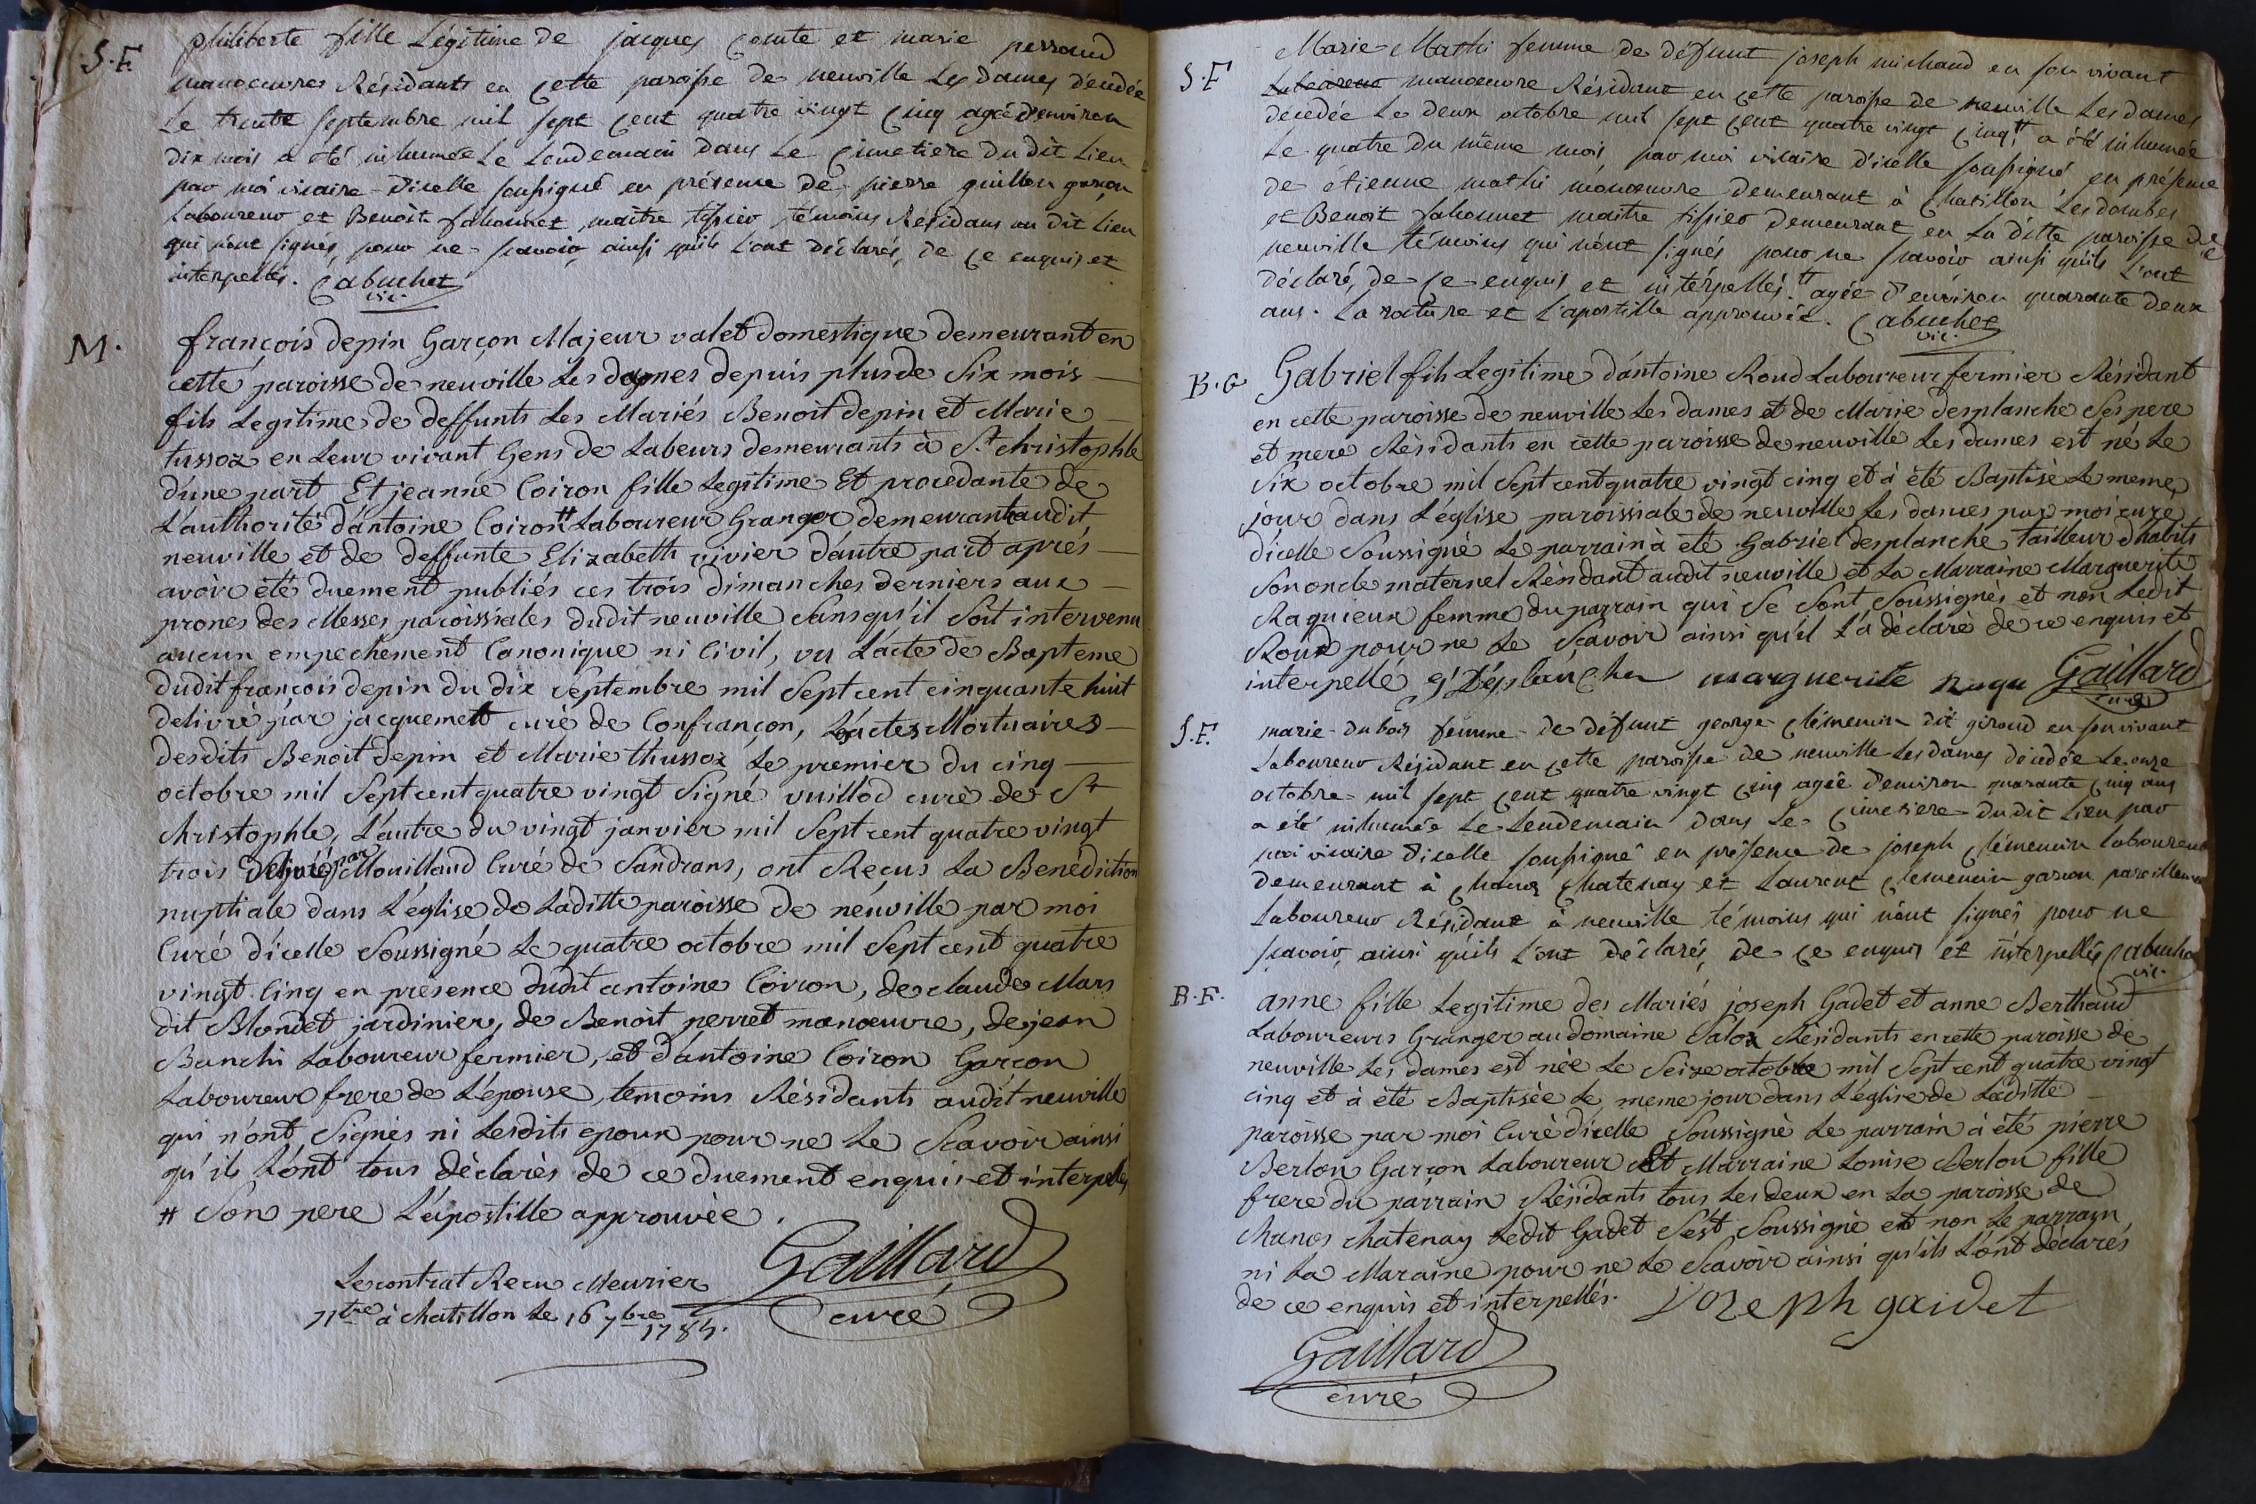 S.F. philiberte fille Légitime de jacques comte et marie perraud
manoeuvres Résidants en cette paroisse de neuville Les dames décédée
Le trente septembre mil sept cent quatre vingt cinq agée d'environ
dix mois a été inhumée Le Lendemain dans Le cimetière du dit Lien
par moi vicaire d'icelle soussigné en présence de pierre guillon garçon
Laboureur et Benoît fahonnet maître tissier témoins Résidans au dit Lieu
qui n'ont signés, pour ne scavoir, ainsi qu'ils L'ont déclarés, de ce enquis et
interpellés. Cabuchet
vic.
M. françois depin Garçon Majeur valet domestique demeurant en
cette paroisse de neuville Les dames depuis plus de Six mois
fils Legitime de deffunts Les Mariés Benoit depin et Marie
tussoz en Leur vivant Gens de Labeurs demeurants à St. christophle
d'une part Et jeanne Coiron fille Legitime Et procedante de
L'authorité d'antoine Coiron # Laboureur Granger demeurant audit
neuville et de deffunte Elizabeth vivier d'autre part aprés
avoir été duement publiés ces trois dimanches derniers aux
prones des Messes paroissiales dudit neuville Sans qu'il Soit intervenu
aucun empechement Canonique ni Civil, vu L'acte de Bapteme
dudit françois depin du dix septembre mil Sept cent cinquante huit
delivré par jacquemett curé de Confrançon, L'actes Mortuaires
desdits Benoit depin et Marie thussoz Le premier du cinq
octobre mil Sept cent quatre vingt Signé vuillod curé de St
christophle, L'autre du vingt janvier mil Sept cent quatre vingt
trois Delivré par Mouillaud Curé de Sandrans, ont Reçus La Benédiction
nuptiale dans L'église de Laditte paroisse de néuville par moi
Curé d'icelle Soussigné Le quatre octobre mil Sept cent quatre
vingt Cinq en presence dudit antoine Coiron, de claude Mars
dit Blondet jardinier, de Benoit perret manoeuvre, de jean
Banchi Laboureur fermier, et d'antoine Coiron Garçon
Laboureur frere de L'epouse, temoins Résidants audit neuville
qui n'ont Signés ni Lesdits epoux pour ne Le Scavoir ainsi
qu'ils L'ont tous déclarés de ce duement enquis et interpellés
# Son pere L'apostille approuvée.
Gaillard
curé
Le contrat Recu Meunier
nre à chatillon Le 16 7bre 1785.
S.F Marie Mathi femme de défunt joseph michaud en son vivant
Laboureur manoeuvre Résidant en cette paroisse de neuville Les dames
décédée Le deux octobre mil sept cent quatre vingt cinq # a été inhumée
Le quatre du même mois par moi vicaire d'icelle soussigné en présence
de étienne mathi manoeuvre demeurant à chatillon Les dombes
et Benoit fahonnet maître tissier demeurant en La ditte paroisse de
neuville témoins qui n'ont signés pour ne scavoir ainsi qu'ils L'ont
déclaré, de ce enquis et intérpellés. # agée d'environ quarante deux
ans. La rature et L'apostille approuvée. Cabuchet
vic.
B.G Gabriel fils Legitime d'antoine Roud Laboureur fermier Résidant
en cette paroisse de neuville Les dames et de Marie desplanche Ses pere
et mere Résidants en cette paroisse de neuville Les dames est né Le
Six octobre mil Sept cent quatre vingt cinq et à été Baptisé Le meme
jour dans L'église paroissiale de neuville Les dames par moi curé
d'icelle Soussigné Le parrain à été Gabriel desplanche tailleur d'habits
Son oncle maternel Résidant audit neuville et La Marraine Marguerite
Raquieux femme du parrain qui Se Sont Soussignés et non Ledit
Roud pour ne Le Scavoir ainsi qu'il L'a déclaré de ce enquis et
interpellé g Désplanche marguerite raqu Gaillard
curé
S.F. marie dubois femme de défunt george clémencin dit giroud en son vivant
Laboureur Résidant en cette paroisse de neuville Les dames décédée Le onze
octobre mil sept cent quatre vingt cinq agée d'environ quarante cinq ans
a été inhumée Le Lendemain dans Le cimetiere du dit Lieu par
moi vicaire d'icelle soussigné en présence de joseph clémencin laboureur
demeurant à chanoz chatenay et Laurent clemencin garçon pareillement
Laboureur Résidant à neuville témoins qui n'ont signés pour ne
scavoir, ainsi qu'ils L'ont déclarés, de ce enquis et interpellés Cabuchet
vic.
B.F. anne fille Legitime des Mariés joseph Gadet et anne Berthaud
Laboureurs Granger au domaine Saloz Résidants en cette paroisse de
neuville Les dames est née Le Seize octobre mil Sept cent quatre vingt
cinq et à été Baptisée Le meme jour dans L'église de Laditte
paroisse par moi Curé d'icelle Soussigné Le parrain à été pierre
Berlon Garçon Laboureur Et Marraine Louise Berlon fille
frere du parrain Résidants tous Les deux en La paroisse de
chanos chatenay Ledit Gadet S'est Soussigné et non Le parrain
ni La Maraine pour ne Le Scavoir ainsi qu'ils L'ont déclarés
de ce enquis et interpellés. Jozeph gaidet
Gaillard
curé